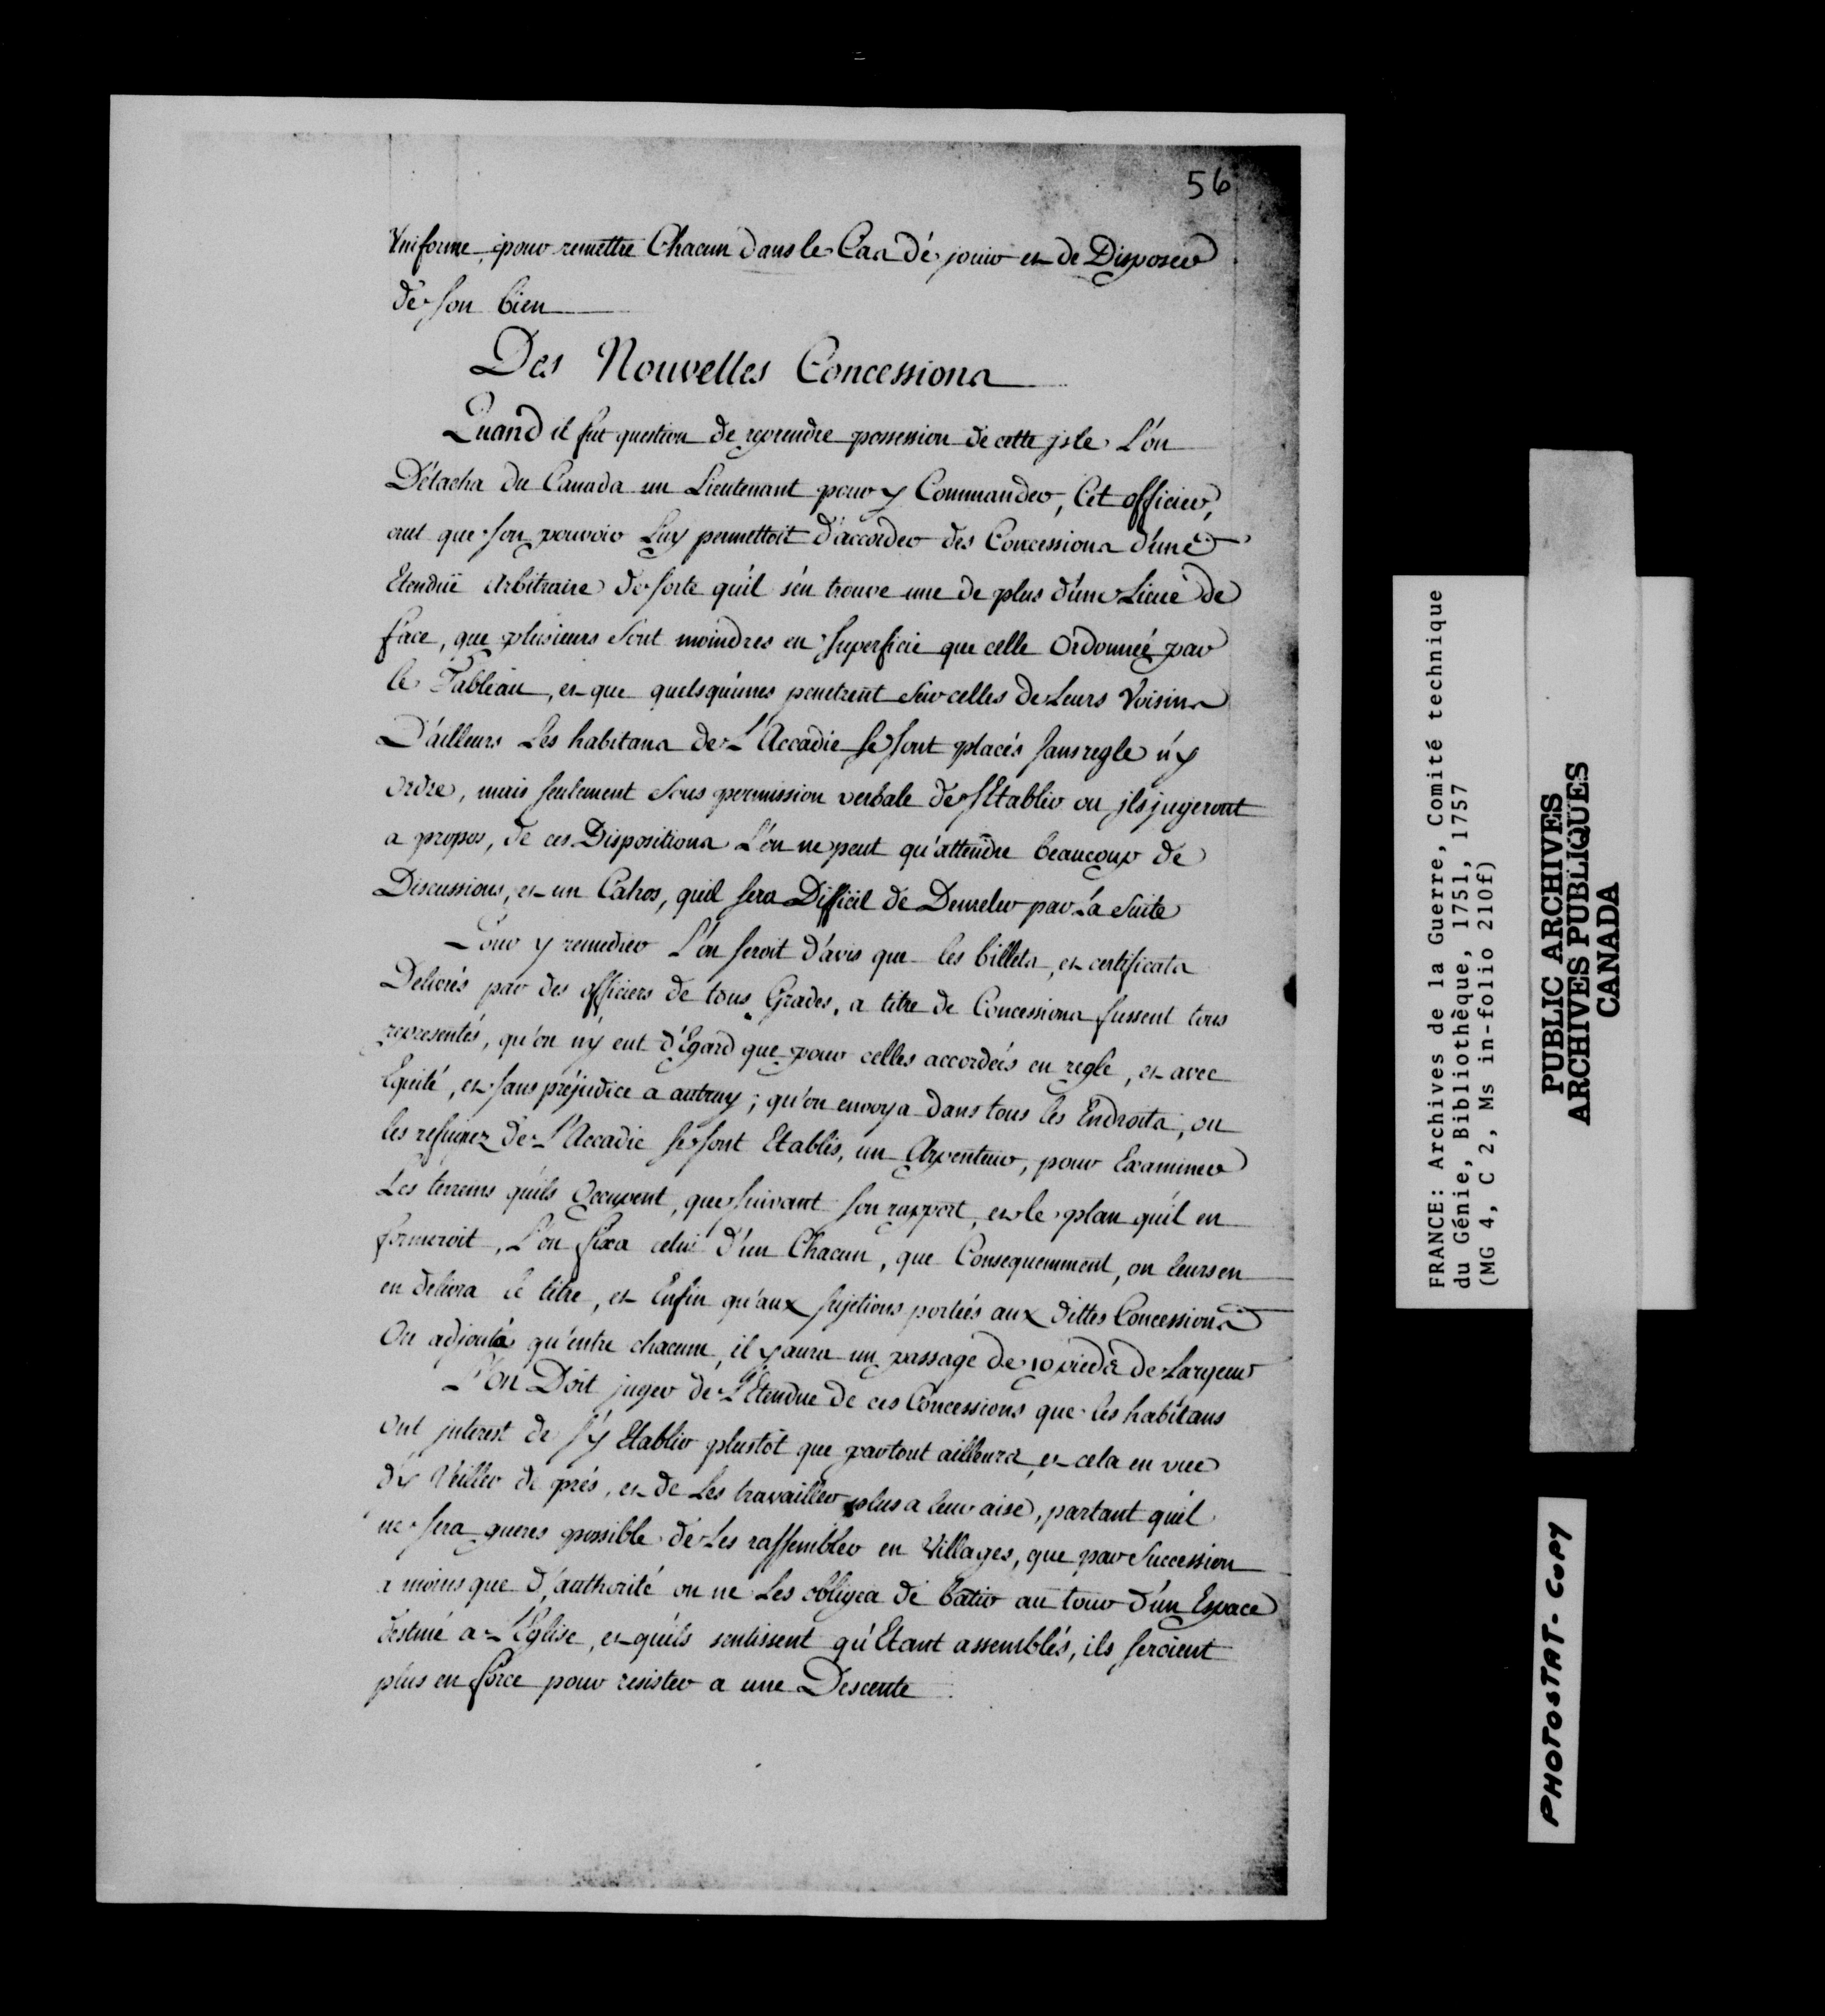 56
Uniforme, pour remettre Chacun dans le Cas de jouir et de Disposer
de son bien
Des Nouvelles Concessions
Quand il fut question de reprendre possession de cette jsle L'on
Détacha du Canada un Lieutenant pour y Commander, Cet officier,
crut que son pouvoir Luy permettoit d'accorder des Concessions d'une
Etenduë Arbitraire de sorte qu'il s'en trouve une de plus d'une Lieuë de
face, que plusieurs sont moindres en superficie que celle Ordonnée par
le Tableau, et que quelsqu'unes penetrent sur celles de Leurs Voisins
D'ailleurs Les habitans de L'Accadie se sont placés sans regle n'y
ordre, mais seulement sous permission verbale de s'Etablir ou jls jugeront
a propos, de ces Dispositions L'on ne peut qu'attendre beaucoup de
Discussions, et un Cahos, quil sera Difficil de Demeler par La suite
Pour y remedier L'on seroit d'avis que les billets, et certificats
Delivrés par des officiers de tous Grades, a titre de Concessions fussent tous
representés, qu'on n'y eut d'Egard que pour celles accordées en regle, et avec
Equité, et sans préjudice a autruy; qu'on envoya dans tous les Endroits, ou
les refugiez de L'Accadie se sont Etablis, un Arpenteur, pour Examiner
Les terreins qu'ils Occupent, que suivant son rapport, et le plan qu'il en
formeroit, L'on fixa celui d'un Chacun, que Consequemment, on leurs en
en delivra le titre, et Enfin qu'aux sujetions portées aux dittes Concessions
On adjouta qu'entre chacune, il y aura un passage de 10 pieds de Largeur
L'on Doit juger de L'Etendue de ces Concessions que les habitans
ont jnterest de s'y Etablir plustôt que partout ailleurs, et cela en vue
d'y Veiller de prés, et de Les travailler plus a leur aise, partant qu'il
ne sera gueres possible de Les rassembler en Villages, que par succession
a moins que d'authorité on ne Les obligea de batir au tour d'un Espace
destiné a L'Eglise, et qu'ils sentissent qu'Etant assemblés, ils seroient
plus en force pour resister a une Descente
FRANCE: Archives de la Guerre, Comité technique
du Génie, Bibliothèque, 1751, 1757
(MG 4, C 2, Ms in-folio 210f)
PUBLIC ARCHIVES
ARCHIVES PUBLIQUES
CANADA
PHOTOSTAT-COPY